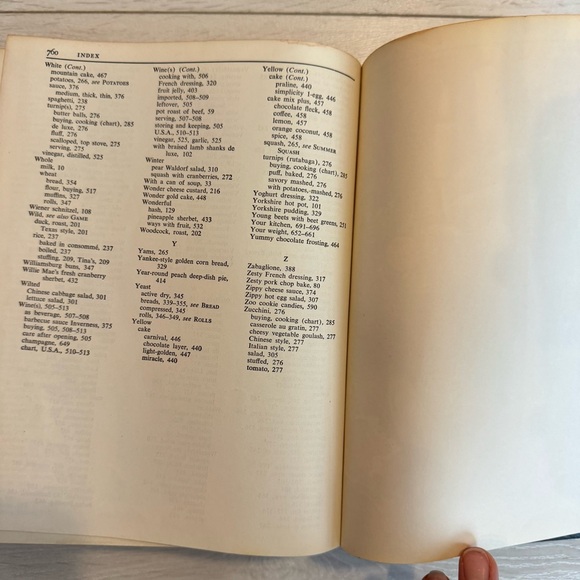 760 INDEX
White (Cont.)
mountain cake, 467
potatoes, 266, see POTATOES
sauce, 376
medium, thick, thin, 376
spaghetti, 238
turnip(s), 275
butter balls, 276
buying, cooking (chart), 285
de luxe, 276
fluff, 276
scalloped, top stove, 275
serving, 275
vinegar, distilled, 525
Whole
milk, 10
wheat
bread, 354
flour, buying, 517
muffins, 327
rolls, 347
Wiener schnitzel, 108
Wild, see also GAME
duck, roast, 201
Texas style, 201
rice, 237
baked in consommé, 237
boiled, 237
stuffing, 209, Tina's, 209
Williamsburg buns, 347
Willie Mae's fresh cranberry
sherbet, 432
Wilted
Chinese cabbage salad, 301
lettuce salad, 301
Wine(s), 505–513
as beverage, 507–508
barbecue sauce Inverness, 375
buying, 505, 508–513
care after opening, 505
champagne, 649
chart, U.S.A., 510–513
Wine(s) (Cont.)
cooking with, 506
French dressing, 320
fruit jelly, 403
imported, 508–509
leftover, 505
pot roast of beef, 59
serving, 507–508
storing and keeping, 505
U.S.A., 510–513
vinegar, 525, garlic, 525
with braised lamb shanks de
luxe, 102
Winter
pear Waldorf salad, 310
squash with cranberries, 272
With a can of soup, 33
Wonder cheese custard, 216
Wonder gold cake, 448
Wonderful
hash, 129
pineapple sherbet, 433
ways with fruit, 532
Woodcock, roast, 202
Y
Yams, 265
Yankee-style golden corn bread,
329
Year-round peach deep-dish pie,
414
Yeast
active dry, 345
breads, 339–355, see BREAD
compressed, 345
rolls, 346–349, see ROLLS
Yellow
cake
carnival, 446
chocolate layer, 440
light-golden, 447
miracle, 440
Yellow (Cont.)
cake (Cont.)
praline, 440
simplicity 1-egg, 446
cake mix plus, 457
chocolate fleck, 458
coffee, 458
lemon, 457
orange coconut, 458
spice, 458
squash, 265, see SUMMER
SQUASH
turnips (rutabaga), 276
buying, cooking (chart), 285
puff, baked, 276
savory mashed, 276
with potatoes, mashed, 276
Yoghurt dressing, 322
Yorkshire hot pot, 101
Yorkshire pudding, 329
Young beets with beet greens, 251
Your kitchen, 691–696
Your weight, 652–661
Yummy chocolate frosting, 464
Z
Zabaglione, 388
Zesty French dressing, 317
Zesty pork chop bake, 80
Zippy cheese sauce, 374
Zippy hot egg salad, 307
Zoo cookie candles, 590
Zucchini, 276
buying, cooking (chart), 285
casserole au gratin, 277
cheesy vegetable goulash, 277
Chinese style, 277
Italian style, 277
salad, 305
stuffed, 276
tomato, 277